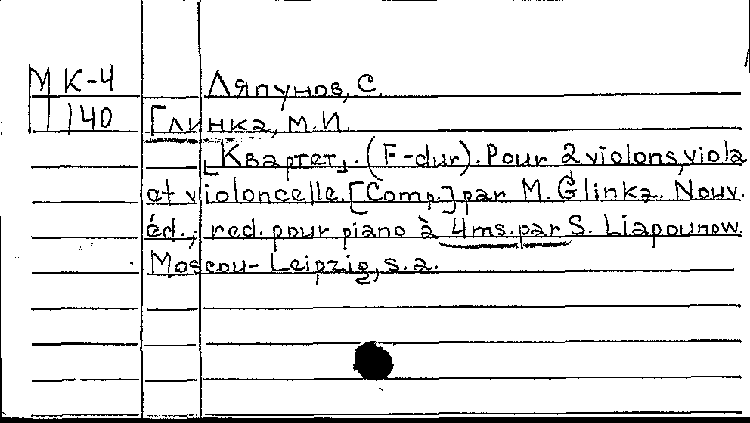 М К-4 Ляпунов, С.
1140 Глинка, М.И.
[Квартет]. (F-dur). Pour 2 violons, viola
et violoncelle. [Comp.] par M. Glinka. Nouv.
éd.; red. pour piano à 4 ms. par S. Liapounow.
Moscou-Leipzig, s.a.